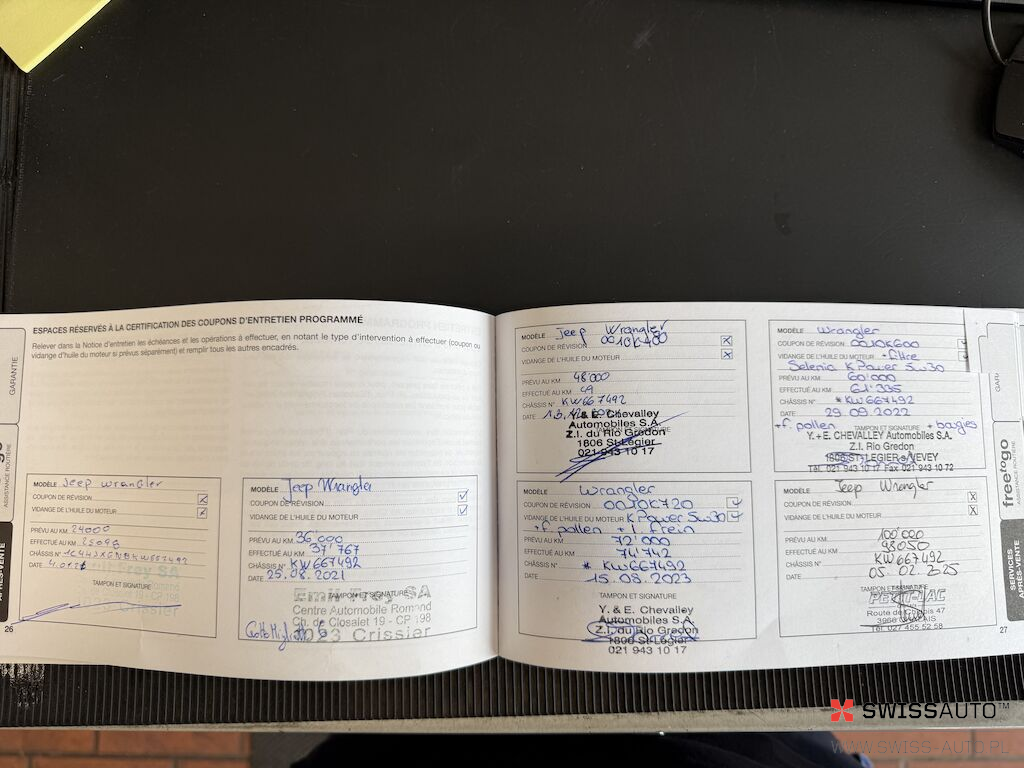 ESPACES RÉSERVÉS À LA CERTIFICATION DES COUPONS D'ENTRETIEN PROGRAMMÉ
Relever dans la Notice d'entretien les échéances et les opérations à effectuer, en notant le type d'intervention à effectuer (coupon ou
vidange d'huile du moteur si prévus séparément) et remplir tous les autres encadrés.
GARANTIE
ASSISTANCE ROUTIÈRE
APRÈS-VENTE
MODÈLE Jeep Wrangler
COUPON DE RÉVISION
VIDANGE DE L'HUILE DU MOTEUR
PRÉVU AU KM 24000
EFFECTUÉ AU KM
CHÂSSIS N°
DATE
TAMPON ET SIGNATURE
Emil Frey SA
Crissier
26
MODÈLE Jeep Wrangler
COUPON DE RÉVISION
VIDANGE DE L'HUILE DU MOTEUR
PRÉVU AU KM 36,000
EFFECTUÉ AU KM 37'767
CHÂSSIS N° KW667492
DATE 25.08.2021
TAMPON ET SIGNATURE
Emil Frey SA
Centre Automobile Romand
Ch. de Closalet 19 - CP 198
1023 Crissier
MODÈLE Jeep Wrangler
COUPON DE RÉVISION 0010K480
VIDANGE DE L'HUILE DU MOTEUR
PRÉVU AU KM 48'000
EFFECTUÉ AU KM 49
CHÂSSIS N° KW667492
DATE
Y. & E. Chevalley
Automobiles S.A.
Z.I. du Rio Gredon
1806 St-Légier
021 943 10 17
MODÈLE Wrangler
COUPON DE RÉVISION 0010K600
VIDANGE DE L'HUILE DU MOTEUR + filtre
Selenia K Power 5w30
PRÉVU AU KM 60'000
EFFECTUÉ AU KM 61'335
CHÂSSIS N° * KW667492
DATE 29.09.2022
+f. pollen TAMPON ET SIGNATURE + bougies
Y. + E. CHEVALLEY Automobiles S.A.
Z.I. Rio Gredon
1806 ST-LEGIER s/VEVEY
Tél. 021 943 10 17 Fax 021 943 10 72
MODÈLE Wrangler
COUPON DE RÉVISION 0010K720
VIDANGE DE L'HUILE DU MOTEUR K Power 5w30
+f. pollen + l. frein
PRÉVU AU KM 72'000
EFFECTUÉ AU KM 74'742
CHÂSSIS N° * KW667492
DATE 15.08.2023
Y. & E. Chevalley
Automobiles S.A.
Z.I. du Rio Gredon
1806 St-Légier
021 943 10 17
MODÈLE Jeep Wrangler
COUPON DE RÉVISION
VIDANGE DE L'HUILE DU MOTEUR
PRÉVU AU KM 100'000
EFFECTUÉ AU KM 98050
CHÂSSIS N° KW667492
DATE 05.02.2025
TAMPON ET SIGNATURE
Tél. 027 455 52 58
freetogo
ASSISTANCE ROUTIÈRE
SERVICES
APRÈS-VENTE
27
SWISSAUTO™
WWW.SWISS-AUTO.PL